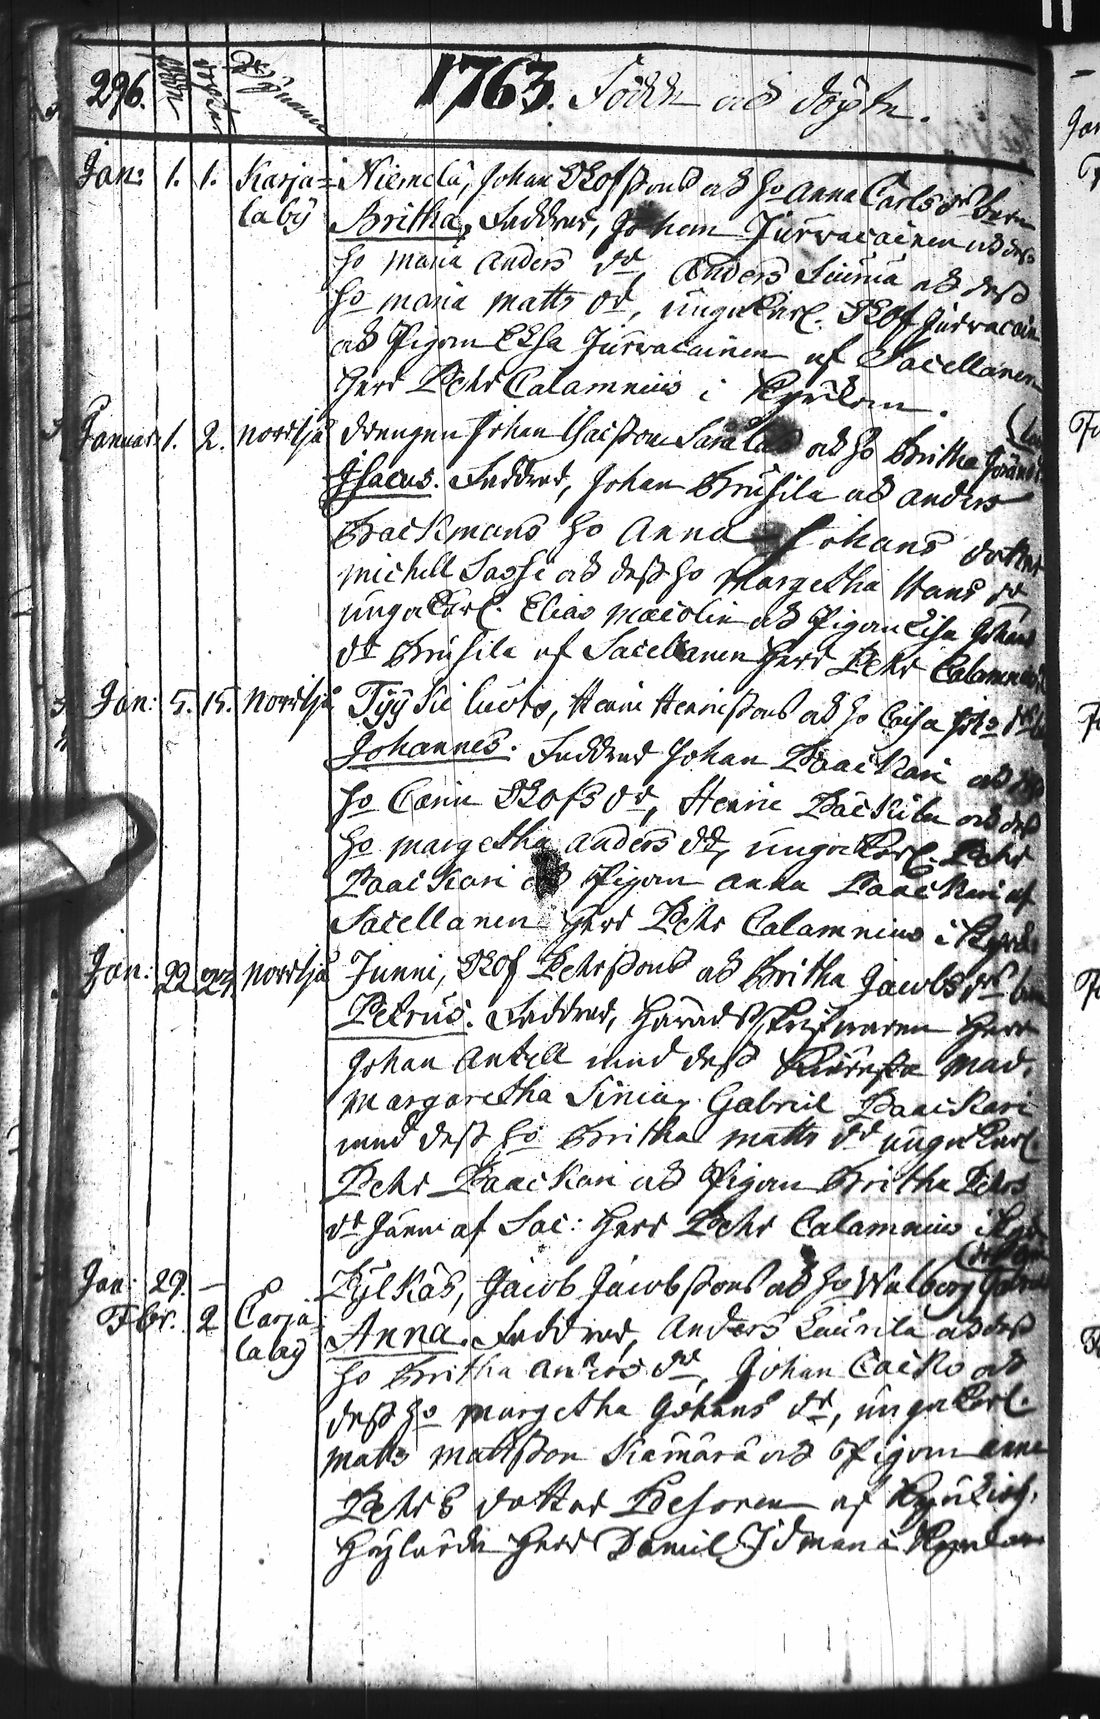 296. 1763. Födde och döpte.
Jan: 1. 1. Karja= Niemelä, Johan Olofssons och ho Anna Carlsdr barn
laby Britha. Faddrar, Johan Jurvacainen och dess
ho Maria Anders dr, Anders och dess
ho Maria Matts dr, unga Karl. Olof Jurvacain
och Pigan Elsa Jurvacainen af Sacellanen
Herr Pehr Calamnius i Kyrkan.
Januar: 1. 2. Nordsjö drengen Johan Isacsson och ho Britha
Isacus. Faddrar, Johan Brusila och Anders
Backmans ho Anna Johans dotter
Michell och dess ho Margetha Hans dr
unga Karl. Elias och Pigan Lisa Johans
dr Brusila af Sacellanen Herr Pehr Calamnius
Jan: 5. 15. Nordsjö Henric Henricssons och ho Caisa
Johannes. Faddrar Johan Paackari och dess
ho Carin Olofs dr, Henric och dess
ho Margetha Anders dr, unga Karl. Pehr
Paackari och Pigan Anna Paackari af
Sacellanen Herr Pehr Calamnius i Kyrk.
Jan: 22 23. Nordsjö Junni, Olof Pehrssons och Britha Jacobs dr barn
Petrus. Faddrar, Herr
Johan Antell med dess Mad.
Margaretha Gabriel Paackari
med dess ho Britha Matts dr unga Karl.
Pehr Paackari och Pigan Britha Pehrs
dr Junni af Sac: Herr Pehr Calamnius i Kyrk
Jan: 29. — Kylkäs, Jacob Jacobssons och ho Walborg
Fbr. 2 Carja= Anna. Faddrar, Anders Laurila och dess
laby ho Britha Anders dr, Johan och
dess ho Margetha Johans dr, unga Karl.
Matts Mattsson Kamara och Pigan Anna
Pehrs dotter Pesonen af
Herr Daniel Idman i Kyrkan